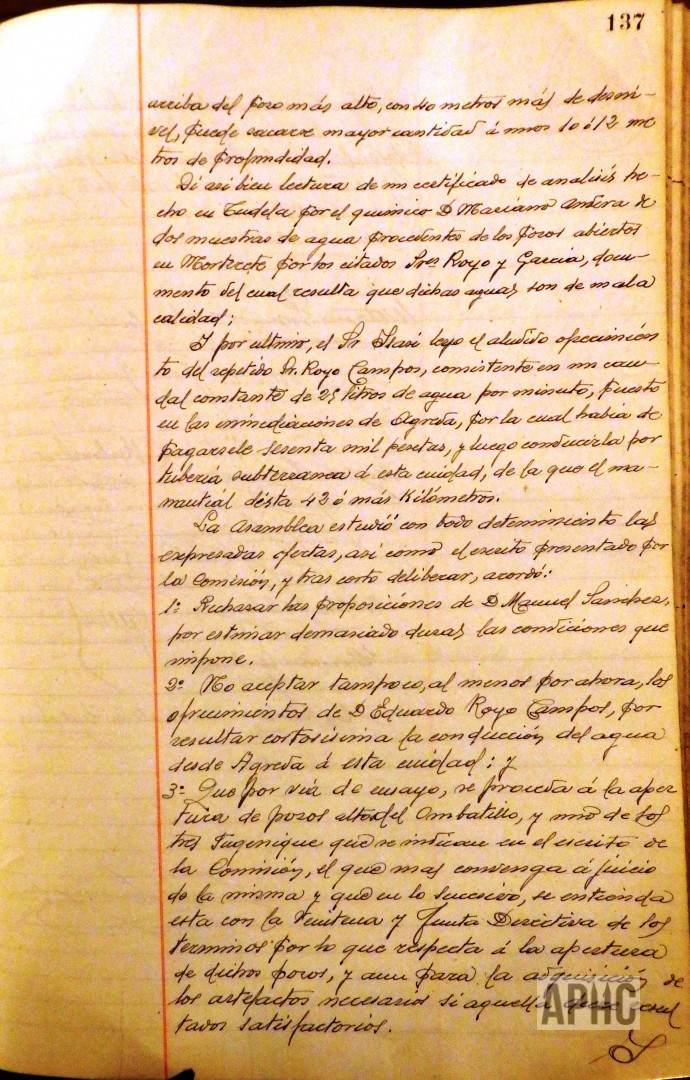 137
arriba del pozo más alto, con 40 metros más de desni-
vel, puede sacarse mayor cantidad á unos 10 ó 12 me
tros de profundidad.
Dí asi bien lectura de un certificado de analisis he-
cho en Tudela por el quimico D Mariano de
dos muestras de agua procedentes de los pozos abiertos
en Morterete por los citados Sres Royo y Garcia, docu-
mento del cual resulta que dichas aguas son de mala
calidad;
Y por ultimo, el Sr leyo el aludido ofrecimien
to del repetido Sr. Royo Campos, consistente en un cau-
dal constante de 25 litros de agua por minuto, puesto
en las inmediaciones de Agreda, por la cual habia de
pagarsele sesenta mil pesetas, y luego conducirla por
tuberia subterranea á esta ciudad, de la que el ma-
nantial dista 42 ó más Kilómetros.
La Asamblea estudió con todo detenimiento las
expresadas ofertas, asi como el escrito presentado por
la Comisión, y tras corto deliberar, acordó:
1º Rechazar las proposiciones de D Manuel Sanchez,
por estimar demasiado duras las condiciones que
impone.
2º No aceptar tampoco, al menos por ahora, los
ofrecimientos de D Eduardo Royo Campos, por
resultar costosisima la conducción del agua
desde Agreda á esta ciudad; y
3º Que por via de ensayo, se proceda á la aper
tura de pozos altos del Ombatillo, y uno de los
tres que se indican en el escrito de
la Comisión, el que mas convenga á juicio
de la misma y que en lo sucesivo, se entienda
esta con la y Junta Directiva de los
terminos por lo que respecta á la apertura
de dichos pozos, y aun para la adquisición de
los artefactos necesarios si aquella diese resul
tados satisfactorios.
APHC